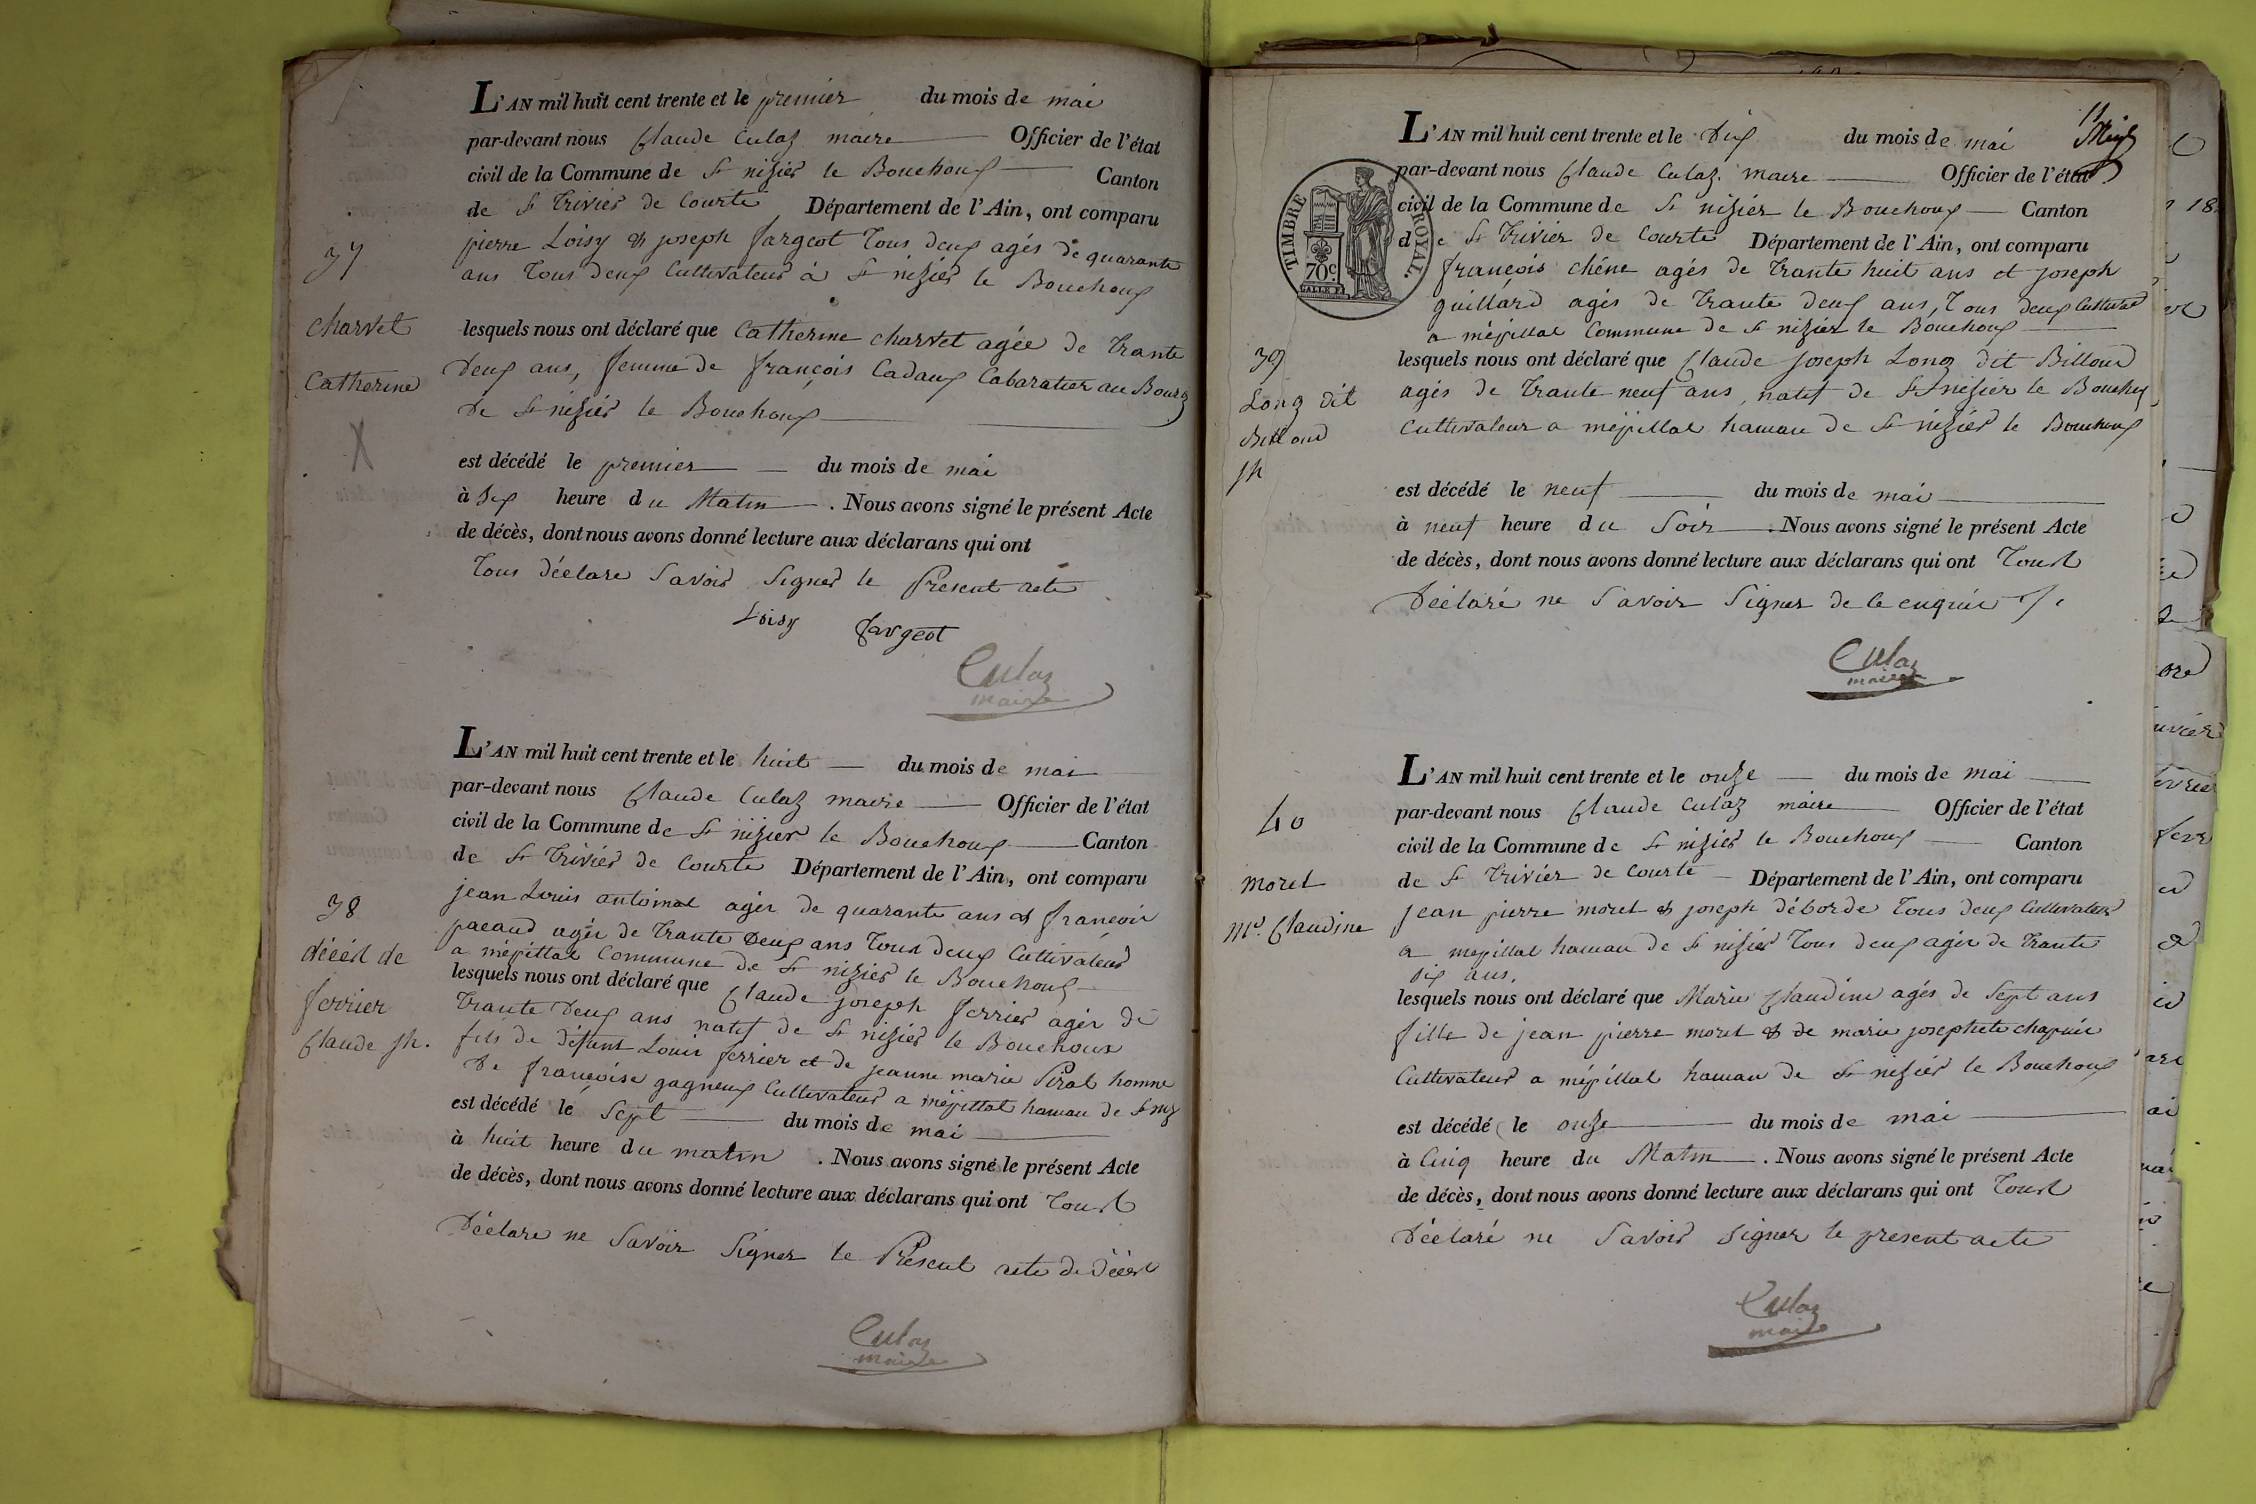 L'AN mil huit cent trente et le premier du mois de mai
par-devant nous Claude Culaz maire Officier de l'état
civil de la Commune de St nizier le Bouchoux Canton
de St Trivier de Courte Département de l'Ain, ont comparu
pierre Loisy & joseph fargeot Tous deux agés de quarante
ans Tous deux Cultivateur à St nizier le Bouchoux
37
charvet
Catherine
X
lesquels nous ont déclaré que Catherine charvet agée de trante
Deux ans, femme de françois Cadaux Cabaratier au Bourg
De St nizier le Bouchoux
est décédé le premier du mois de mai
à Six heure du Matin. Nous avons signé le présent Acte
de décès, dont nous avons donné lecture aux déclarans qui ont
Tous déclare Savoir Signer le Present acte
Loisy fargeot
Culaz
maire
L'AN mil huit cent trente et le huit du mois de mai
par-devant nous Claude Culaz maire Officier de l'état
civil de la Commune de St nizier le Bouchoux Canton
de St Trivier de Courte Département de l'Ain, ont comparu
jean Louis antoinat agér de quarante ans & françoir
pacaud agér de Trante Deux ans Tous deux Cultivateur
a mépillat Commune de St nizier le Bouchoux
38
décést de
ferrier
Claude jh.
lesquels nous ont déclaré que Claude joseph ferrier agér de
Trante Deux ans natif de St nizier le Bouchoux
fils de défunt Louir ferrier et de jeanne marie Pirat homme
De françoise gagneux Cultivateur a mépillat hamau de St niz
est décédé le Sept du mois de mai
à huit heure du matin. Nous avons signé le présent Acte
de décès, dont nous avons donné lecture aux déclarans qui ont Toust
Déclare ne Savoir Signer le Présent acte de Décest
Culaz
maire
11
L'AN mil huit cent trente et le Dix du mois de mai
par-devant nous Claude Culaz. maire Officier de l'état
civil de la Commune de St nizier le Bouchoux Canton
de St Trivier de Courte Département de l'Ain, ont comparu
françois chéne agés de Trante huit ans et joseph
guillard agés de Trante deux ans, Tous deux Cultivat
a mépillat Commune de St nizier le Bouchoux
TIMBRE ROYAL.
70c.
39
Long dit
Billoud
jh
lesquels nous ont déclaré que Claude joseph Long dit Billoud
agés de Trante neuf ans, natif de St nizier le Bouchx
Cultivateur a mépillat hamau de St nizier le Bouchoux
est décédé le neuf du mois de mai
à neuf heure du Soir. Nous avons signé le présent Acte
de décès, dont nous avons donné lecture aux déclarans qui ont Toust
Déclaré ne Savoir Signer de le enquir
Culaz
maire
L'AN mil huit cent trente et le onze du mois de mai
par-devant nous Claude Culaz maire Officier de l'état
civil de la Commune de St nizier le Bouchoux Canton
de St Trivier de Courte Département de l'Ain, ont comparu
jean pierre moret & joseph déborde Tous deux Cultivateur
a mepillat hamau de St nizier Tous deux agér de Trante
Six ans.
40
moret
Me. Claudine
lesquels nous ont déclaré que Marie Claudine agés de Sept ans
fille de jean pierre moret & de marie josephete chapuir
Cultivateur a mépillat hamau de St nizier le Bouchoux
est décédé le onze du mois de mai
à Cinq heure du Matin. Nous avons signé le présent Acte
de décès, dont nous avons donné lecture aux déclarans qui ont Toust
Déclaré ne Savoir Signer le present acte
Culaz
maire